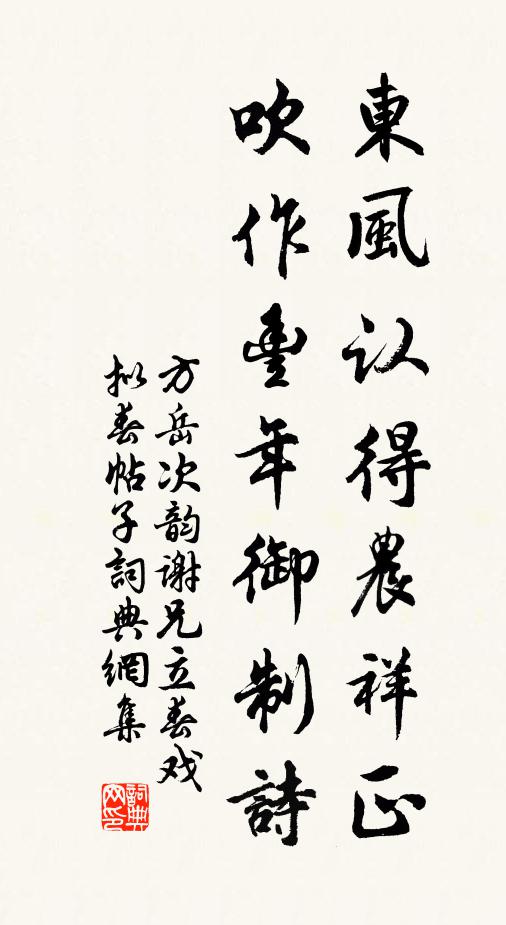 東風认得農祥正
吹作豊年御制詩
方岳次韵谢兄立春戏
拟春帖子詞典網集
詞典网印